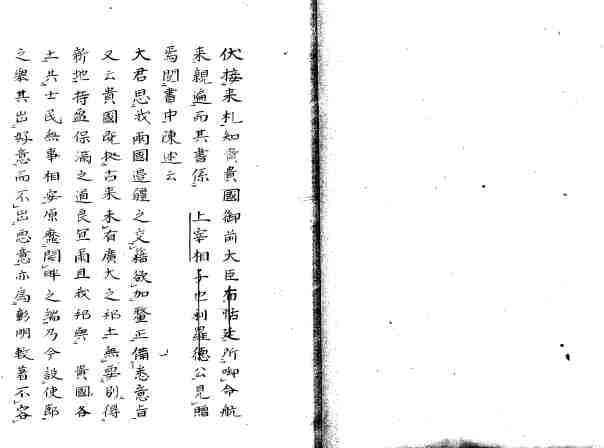 伏接来札知貴貴國御前大臣布恬廷所啣令航
来親遞而其書係 上宰相子也利羅德公見贈
焉閲書中陳述云
大君思我兩國邉疆之交籍欲加釐正備悉意旨
又云貴國既挾古来未有廣大之邦土無要別得
新地持盈保滿之道良宜爾且我邦與 貴國各
土共士民無事相安原無開畔之端乃今設使鄰
之舉其出好意而不出悪意亦為彰明較著不容